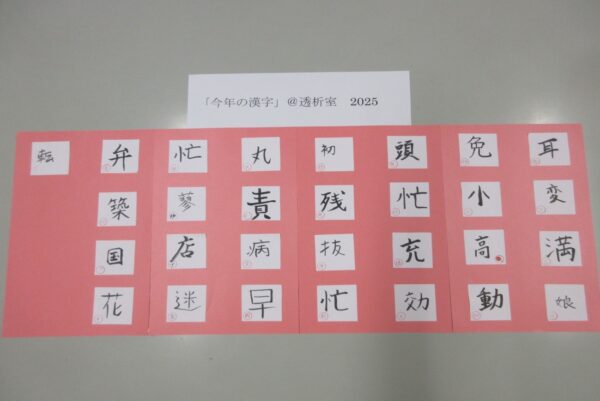 「今年の漢字」＠透析室　2025
転 弁 忙 丸 初 頭 免 耳
築 蓼 責 残 忙 小 変
国 店 病 抜 充 高 満
花 迷 早 忙 効 動 娘